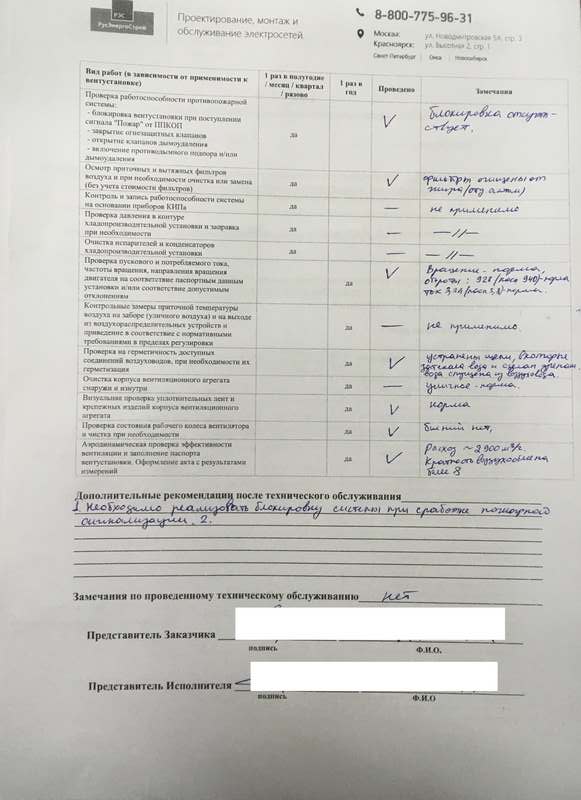 РЭС
РусЭнергоСтрой
Проектирование, монтаж и
обслуживание электросетей.
8-800-775-96-31
Москва: ул. Новодмитровская 5А, стр. 3
Красноярск: ул. Высотная 2, стр. 1
Санкт-Петербург Омск Новосибирск
Вид работ (в зависимости от применимости к вентустановке) 1 раз в полугодие / месяц / квартал / разово 1 раз в год Проведено Замечания
Проверка работоспособности противопожарной
системы:
- блокировка вентустановки при поступлении
сигнала "Пожар" от ППКОП
- закрытие огнезащитных клапанов
- открытие клапанов дымоудаления
- включение противодымного подпора и/или
дымоудаления
да
блокировка отсут-
ствует.
Осмотр приточных и вытяжных фильтров
воздуха и при необходимости очистка или замена
(без учета стоимости фильтров)
да
фильтры очищены от
жира
Контроль и запись работоспособности системы
на основании приборов КИПа
да —
не применимо
Проверка давления в контуре
хладопроизводительной установки и заправка
при необходимости
да — — // —
Очистка испарителей и конденсаторов
хладопроизводительной установки
да — — // —
Проверка пускового и потребляемого тока,
частоты вращения, направления вращения
двигателя на соответствие паспортным данным
установки и/или соответствие допустимым
отклонениям
да
Вращение - норма,
обороты: 928 940)-норма
ток -норма.
Контрольные замеры приточной температуры
воздуха на заборе (уличного воздуха) и на выходе
из воздухораспределительных устройств и
приведение в соответствие с нормативными
требованиями в пределах регулировки
да —
не применимо.
Проверка на герметичность доступных
соединений воздуховодов, при необходимости их
герметизация
да
устранены щели, в которые
затекала вода и сделан дренаж.
вода спущена из воздуховода.
Очистка корпуса вентиляционного агрегата
снаружи и изнутри
да —
уличное - норма.
Визуальная проверка уплотнительных лент и
крепежных изделий корпуса вентиляционного
агрегата
да
норма
Проверка состояния рабочего колеса вентилятора
и чистка при необходимости
да
биений нет,
Аэродинамическая проверка эффективности
вентиляции и заполнение паспорта
вентустановки. Оформление акта с результатами
измерений
да
Расход ~ 2900 м³/ч.
Кратность воздухообмена
более 8
Дополнительные рекомендации после технического обслуживания
1. Необходимо реализовать блокировку системы при сработке пожарной
сигнализации. 2.
Замечания по проведенному техническому обслуживанию нет
Представитель Заказчика
подпись Ф.И.О.
Представитель Исполнителя
подпись Ф.И.О